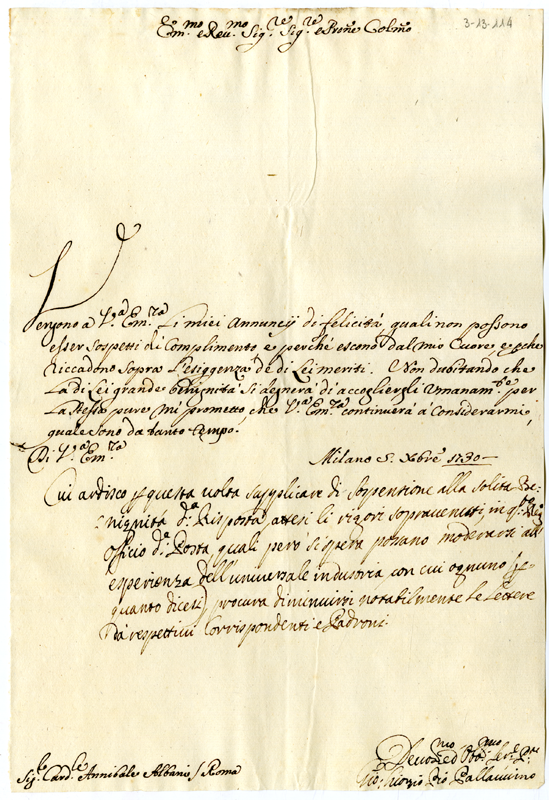 3-13-114
Em.mo e Reu.mo Sig.re Sig.re e Prõne Colmõ
Vengono a V.a Em.za li miei Annuncij di felicità, quali non possono
esser sospetti di Complimento e perché escono dal mio Cuore, e perche
Riccadono Sopra l'esiggenza de di Lei meriti. Non dubitando che
La di Lei grande benignità Si degnerà di accoglierli Vmanam.te e per
La stessa pure mi prometto che V.a Em.za continuerà à Considerarmi,
quale sono da tanto tempo.
Di V.a Em.za
Milano 5. Xbre 1730
Cui ardisco p questa uolta supplicare di Sospensione alla solita Be-
nignità d.a Risposta, attesi li rigori soprauenuti, in q.to
officio d.a Posta, quali pero si spera possano moderarsi all'
esperienza dell'uniuersale industria con cui ognuno (p
quanto dicesi) procura diminuirsi notabilmente le Lettere
Dà respettiui Corrispondenti e Padroni.
Sig.r Card.le Annibale Albani / Roma
Deuo.mo ed Obb.mo Ser.e
Gio. Giorgio Pio Pallauicino